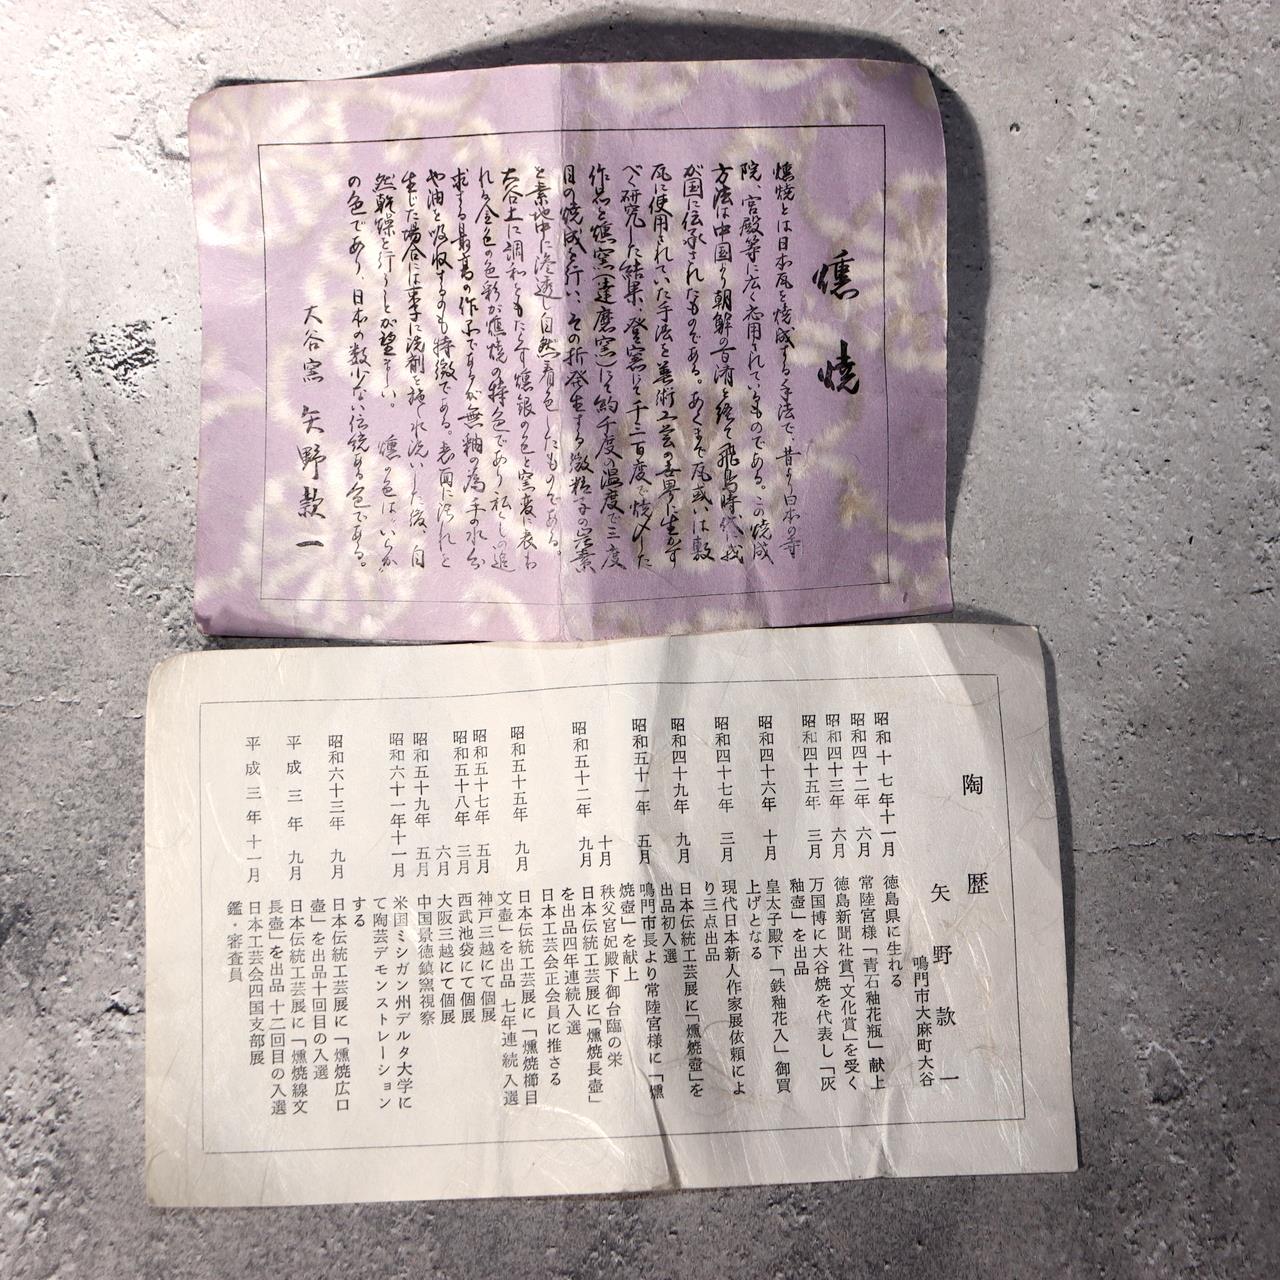 燻焼
燻焼とは日本瓦を焼成する手法で、昔より日本の寺
院、宮殿等に広く応用されているものである。この焼成
方法は中国より朝鮮の百済を経て飛鳥時代、我
が国に伝承されたものである。あくまで瓦或いは敷
瓦に使用されていた手法を美術工芸の世界に生かす
べく研究した結果、登窯にて千二百度で焼〆した
作品を燻窯(達磨窯)にて約千度の温度で三度
目の焼成を行い、その折発生する微粒子の炭素
を素地中に滲透し自然着色したものである。
大谷土に調和をもたらす燻銀の色と窯変に表わ
れる金色の色彩が燻焼の特色であり私としの追
求する最高の作品であるが無釉の為手の水分
や油を吸収するのも特徴である。表面に汚れを
生じた場合には早季に洗剤を施し水洗いした後、自
然乾燥を行うことが望ましい。燻の色は、いらか
の色であり、日本の数少ない伝統ある色である。
大谷窯 矢野款一
陶歴
矢野款一
鳴門市大麻町大谷
昭和十七年十一月 徳島県に生れる
昭和四十二年 六月 常陸宮様「青石釉花瓶」献上
昭和四十三年 六月 徳島新聞社賞「文化賞」を受く
昭和四十五年 三月 万国博に大谷焼を代表し「灰
釉壺」を出品
昭和四十六年 十月 皇太子殿下「鉄釉花入」御買
上げとなる
昭和四十七年 三月 現代日本新人作家展依頼によ
り三点出品
昭和四十九年 九月 日本伝統工芸展に「燻焼壺」を
出品初入選
昭和五十一年 五月 鳴門市長より常陸宮様に「燻
焼壺」を献上
十月 秩父宮妃殿下御台臨の栄
昭和五十二年 九月 日本伝統工芸展に「燻焼長壺」
を出品四年連続入選
日本工芸会正会員に推さる
昭和五十五年 九月 日本伝統工芸展に「燻焼櫛目
文壺」を出品 七年連続入選
昭和五十七年 五月 神戸三越にて個展
昭和五十八年 三月 西武池袋にて個展
六月 大阪三越にて個展
昭和五十九年 五月 中国景徳鎮窯視察
昭和六十一年十一月 米国ミシガン州デルタ大学に
て陶芸デモンストレーション
する
昭和六十三年 九月 日本伝統工芸展に「燻焼広口
壺」を出品十回目の入選
平成 三年 九月 日本伝統工芸展に「燻焼線文
長壺」を出品 十二回目の入選
平成 三年 十一月 日本工芸会四国支部展
鑑・審査員